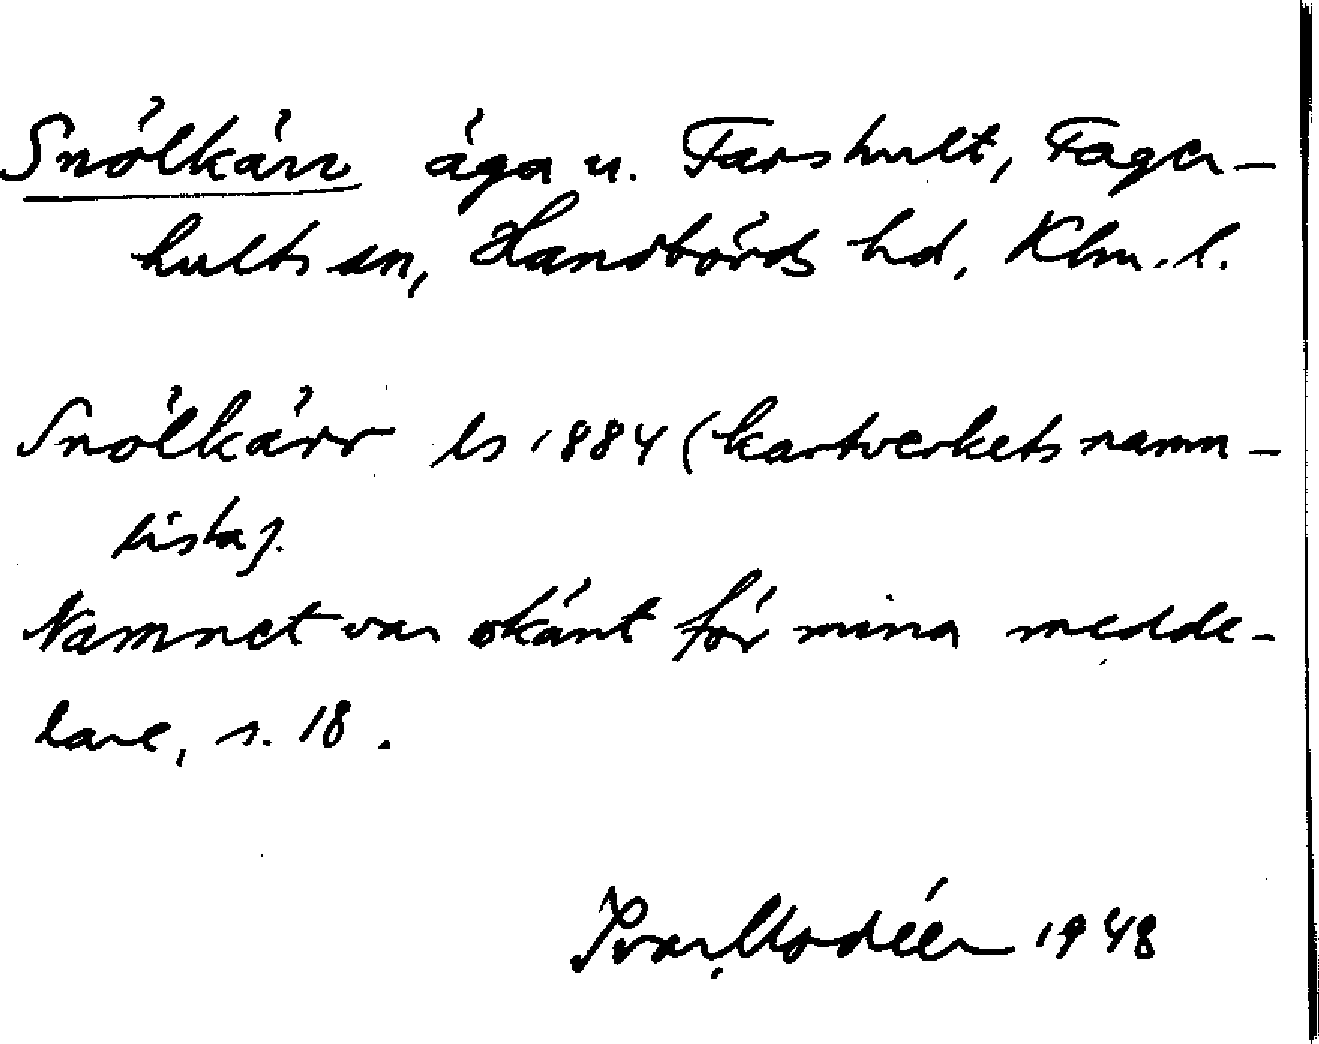 Snölkärr äga u. Farshult, Fager-
hults sn, Handbörds hd, Klm. l.
Snölkärr ls 1884 (kartverkets namn-
lista).
Namnet var okänt för mina medde-
lare, s. 18.
Ivar Modéer 1948